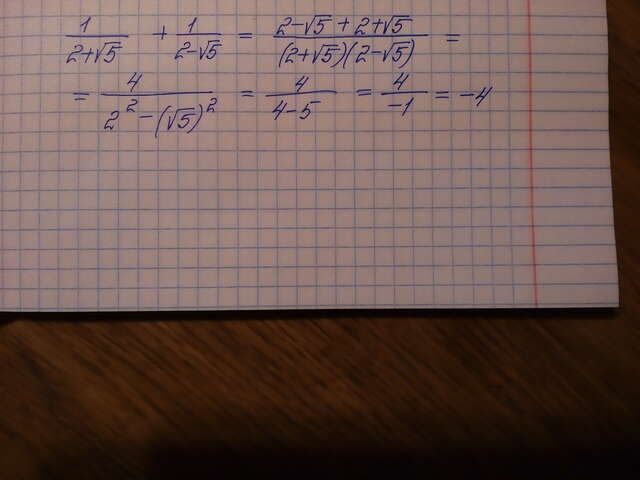 1/(2+√5) + 1/(2-√5) = (2-√5 + 2+√5)/((2+√5)(2-√5)) =
= 4/(2² - (√5)²) = 4/(4-5) = 4/(-1) = -4